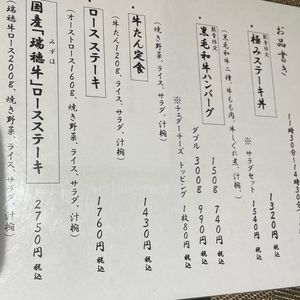 お品書き
11時30分〜14時30分
数量限定
極みステーキ丼
1320円 税込
※サラダセット 1540円 税込
数量限定
黒毛和牛ハンバーグ
150g 740円 税込
ダブル 300g 990円 税込
※チェダーチーズ トッピング 1枚80円 税込
(焼き野菜、ライス、サラダ、汁椀)
牛たん定食
1430円 税込
(牛たん120g、ライス、サラダ、汁椀)
ロースステーキ
1760円 税込
(オーストロース160g、焼き野菜、ライス、サラダ、汁椀)
国産「瑞穂牛」ロースステーキ
みずほ
2750円 税込
(瑞穂牛ロース200g、焼き野菜、ライス、サラダ、汁椀)